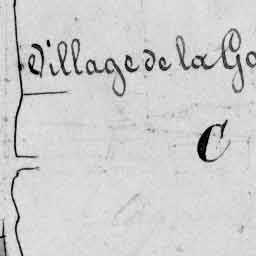 Village de la
C